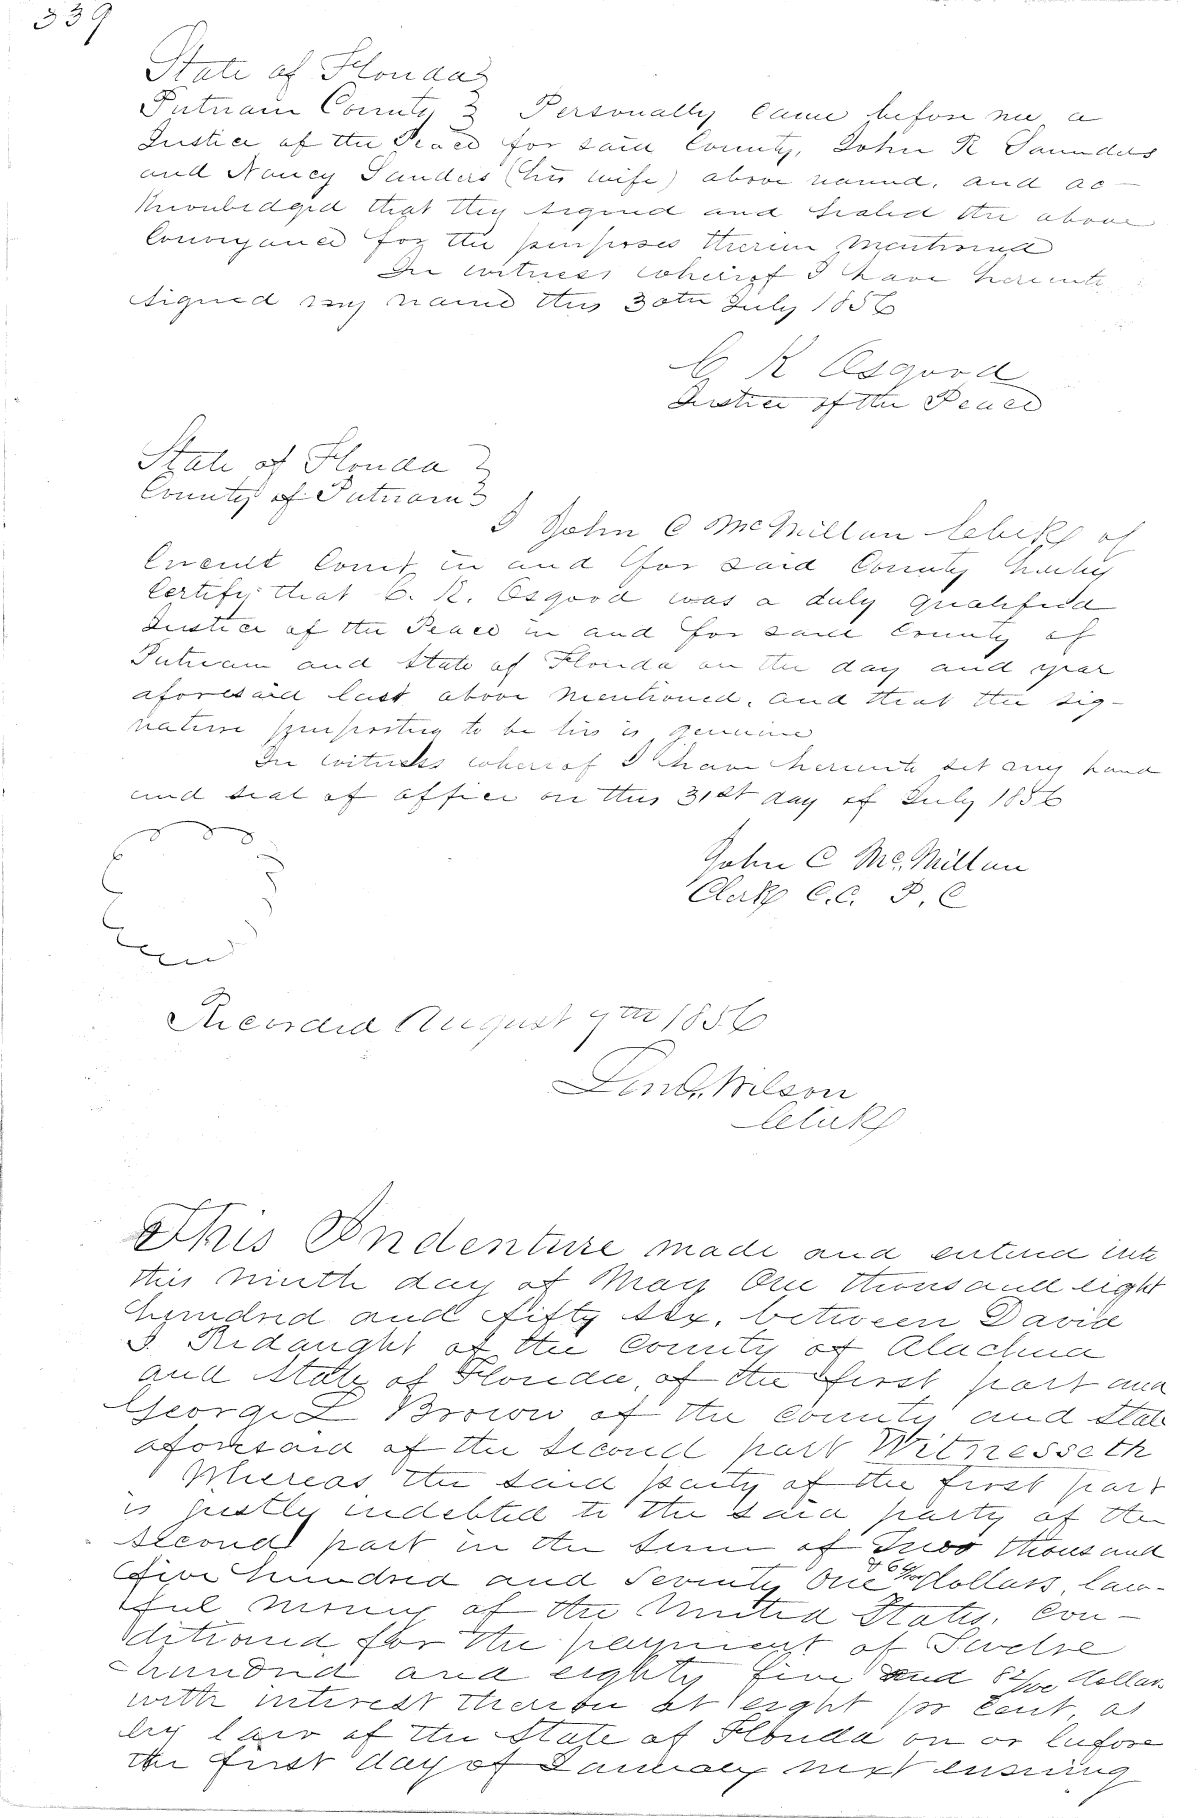 339
State of Florida
Putnam County } Personally came before me a
Justice of the Peace for said County, John R Saunders
and Nancy Sanders (his wife) above named, and ac-
knowledged that they signed and sealed the above
Conveyance for the purposes therein mentioned
In witness whereof I have hereunto
signed my name this 30th July 1856
C K Osgood
Justice of the Peace
State of Florida }
County of Putnam }
I John C McMillan Clerk of
Circuit Court in and for said County hereby
Certify that C. K. Osgood was a duly qualified
Justice of the Peace in and for said County of
Putnam and State of Florida on the day and year
aforesaid last above mentioned, and that the sig-
nature purporting to be his is genuine
In witness whereof I have hereunto set my hand
and seal of office on this 31st day of July 1856
John C McMillan
Clerk C.C. P.C
Recorded August 7th 1856
Wilson
Clerk
This Indenture made and entered into
this ninth day of May One thousand eight
hundred and fifty six, between David
I. Redaught of the County of Alachua
and State of Florida, of the first part and
George L Brown of the county and State
aforesaid of the second part Witnesseth
Whereas the said party of the first part
is justly indebted to the said party of the
second part in the sum of Two thousand
five hundred and Seventy One & 64/100 dollars, law-
ful money of the United States, Con-
ditioned for the payment of Twelve
hundred and eighty five and 82/100 dollars
with interest thereon at eight pr Cent, as
by law of the State of Florida on or before
the first day of January next ensuing